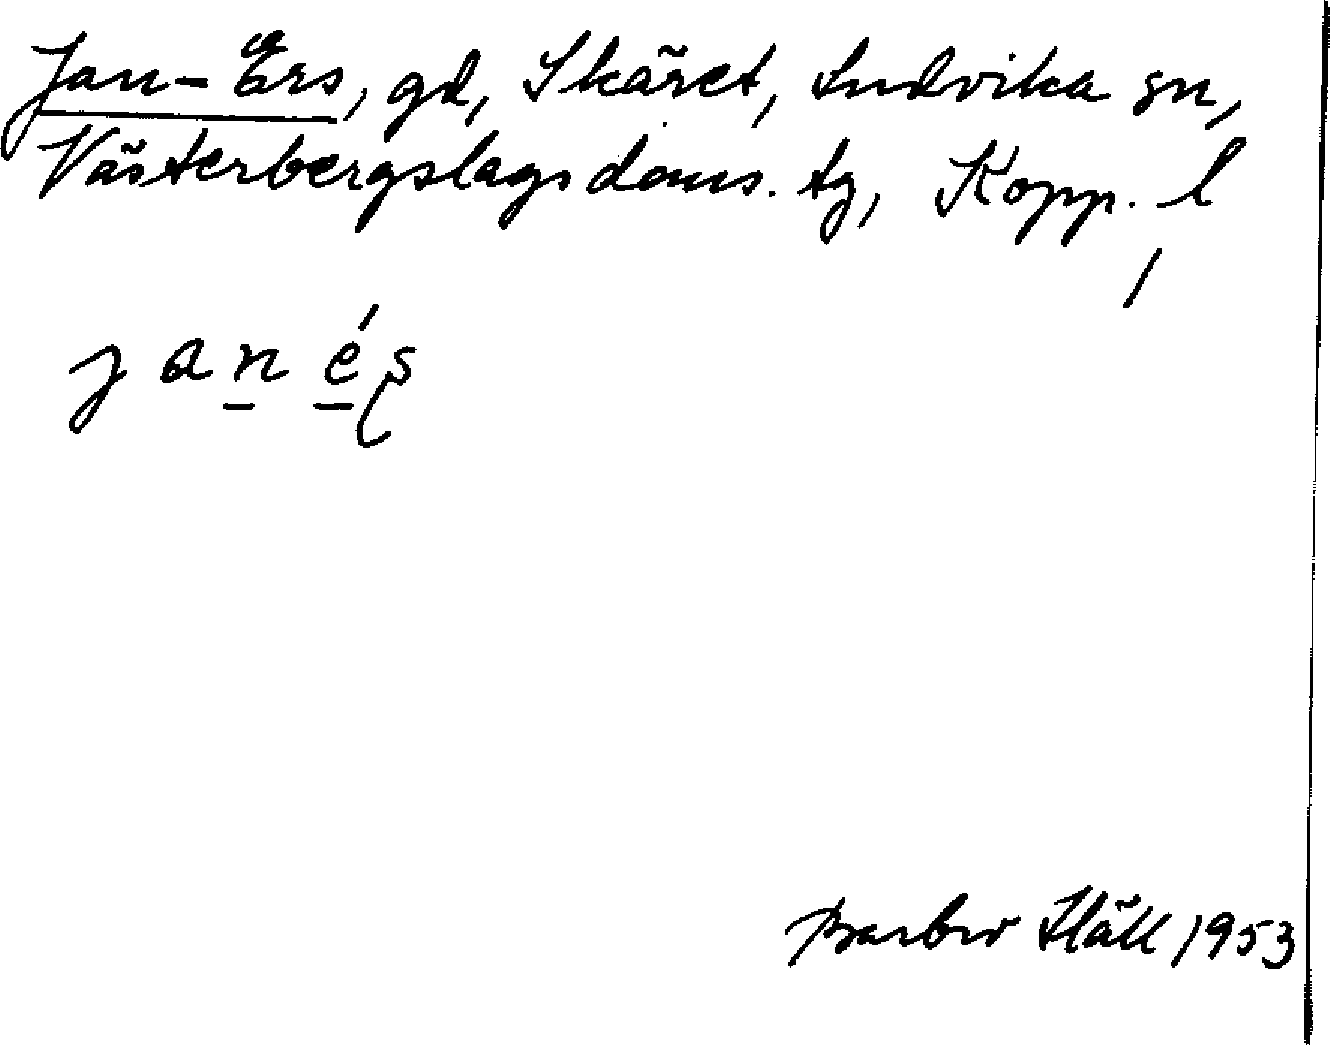 Jan-Ers, gd, Skäret, Ludvika sn,
Västerbergslags doms. tg, Kopp. l
jané̱s
Barbro Häll 1953